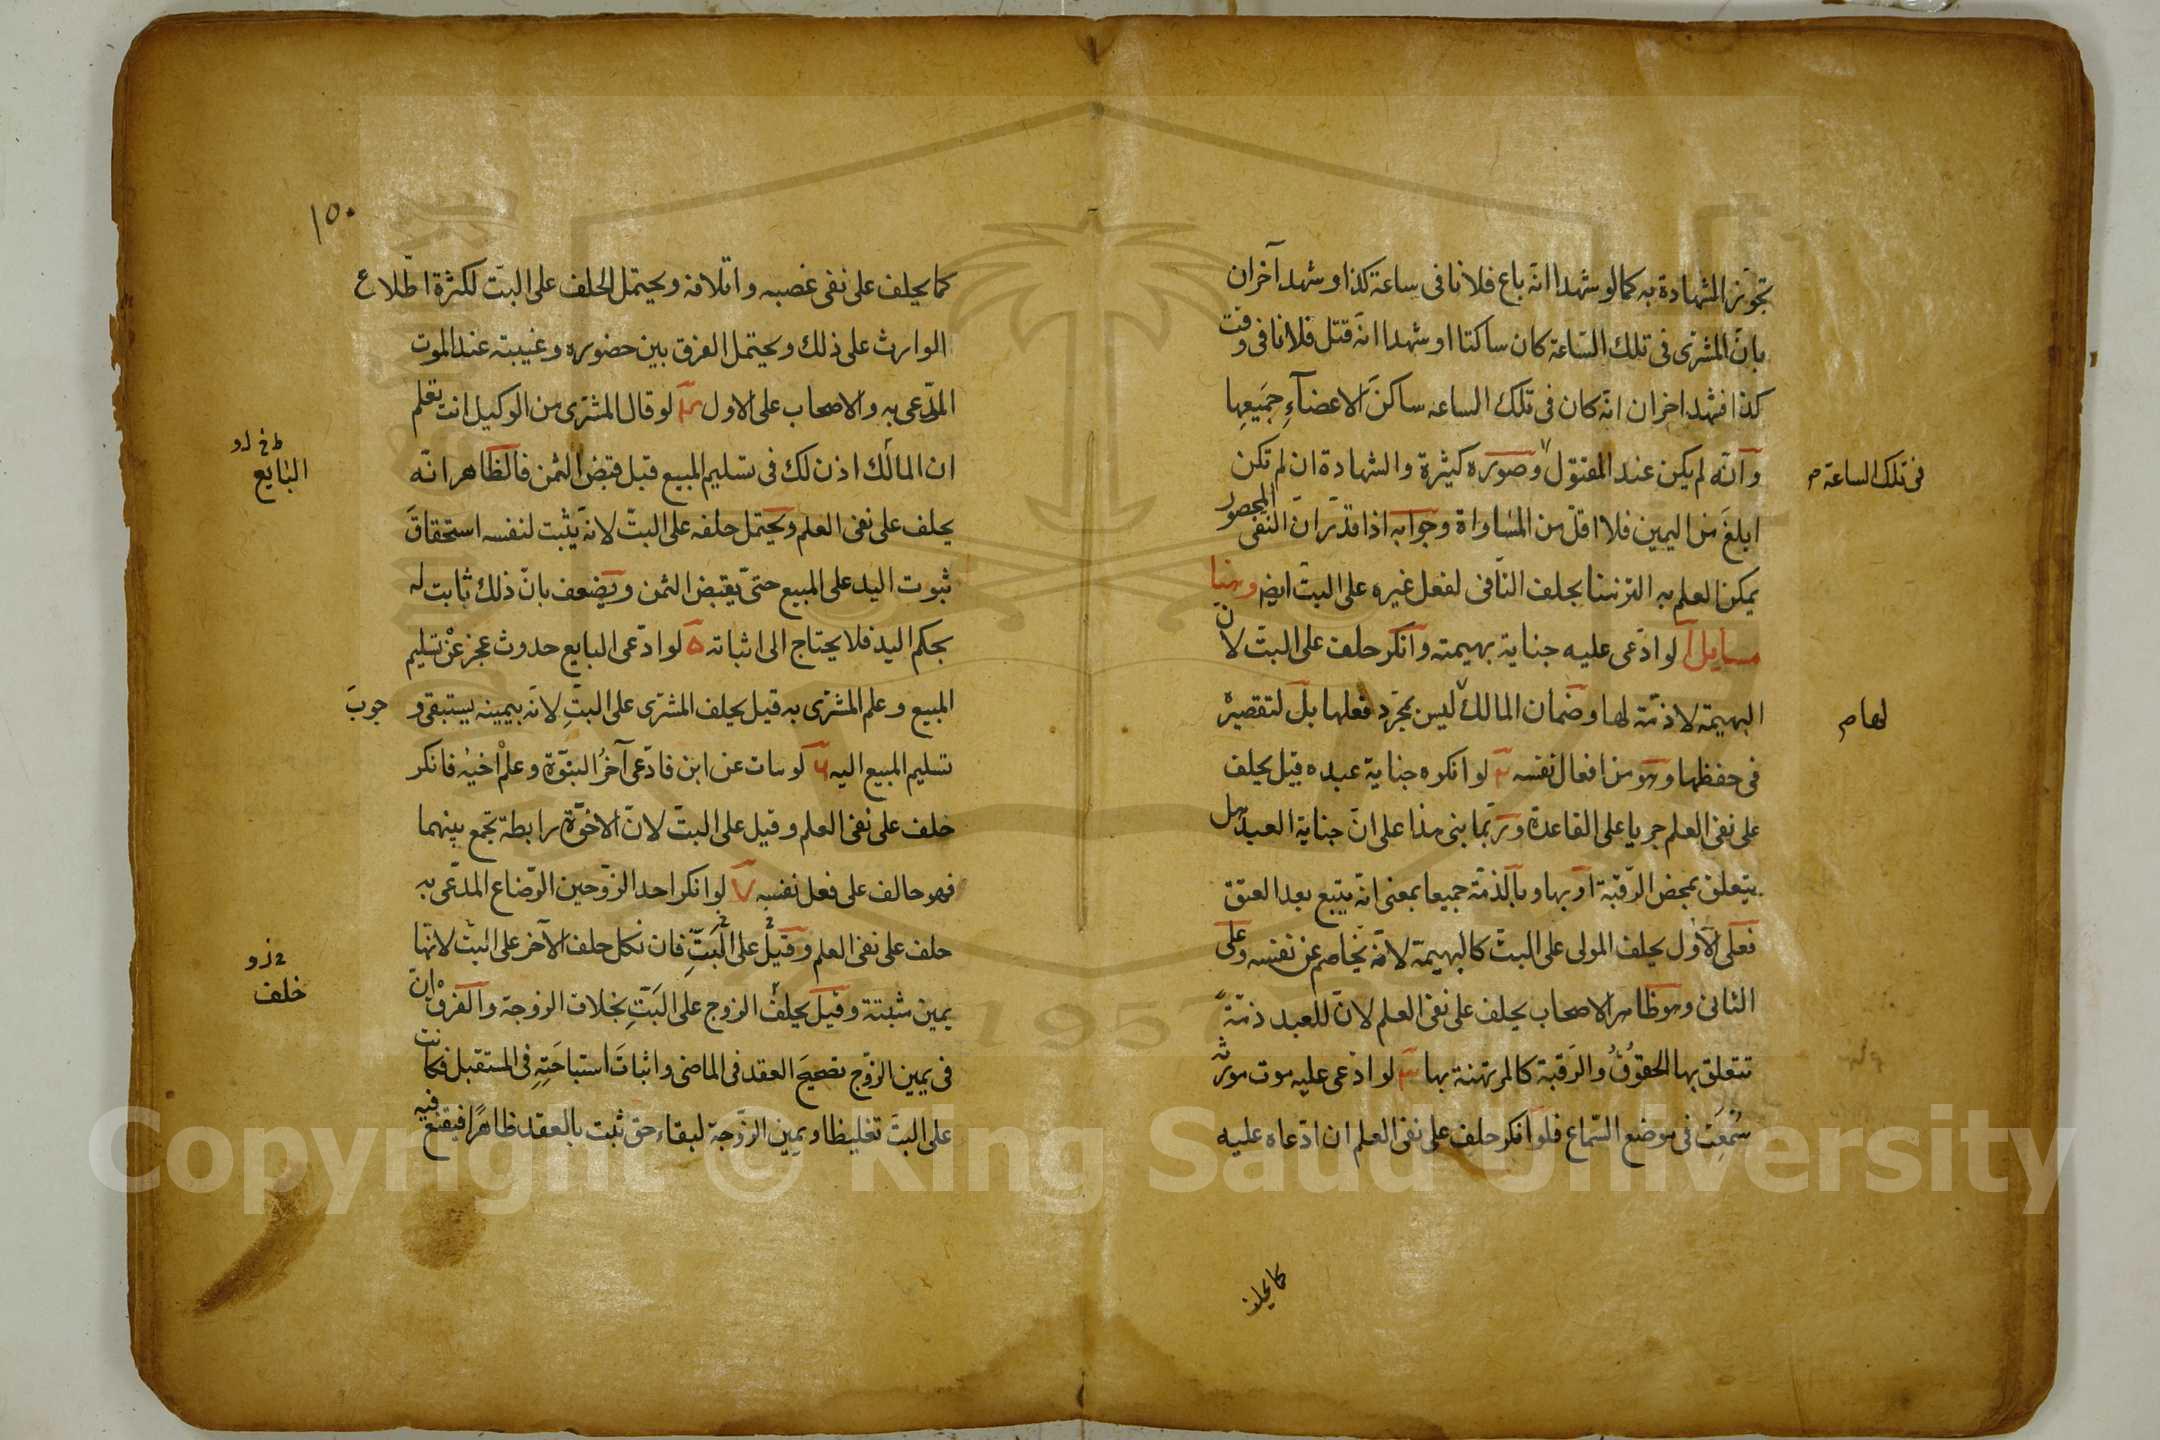 تجوّز الشهادة به كما لو شهدا انّه باع فلانا فى ساعة كذا وشهد آخران
بانّ المشترى فى تلك السّاعة كان ساكتا او شهدا انّه قتل فلانا فى وقت
كذا فشهد اخران انّه كان فى تلك الساعه ساكنَ الاعضآءِ جَمِيعِها
وانّه لم يكن عند المقتول وصوره كثيرة والشهادة ان لم تكن
فى تلك الساعة م
ابلغَ من اليمين فلا اقلّ من المساواة وجوابه اذا قدّر انّ النفى المحصور
يمكن العلم به التزمنا بحلف النّافى لفعل غيره على البتّ ايضا وهنا
مسايل آ لو ادّعى عليه جناية بهيمته وانكر حلف على البتّ لانّ
البهيمة لا ذمّة لها وضمان المالك ليس بمجرّد فعلها بل لتقصيره
لها م
فى حفظها وهو من افعال نفسه ٢ لو انكره جناية عبده قيل يحلف
على نفى العلم جريا على القاعدة وربّما بنى هذا على انّ جناية العبد هل
يتعلق بمحض الرّقبة او بها وبالذمّة جميعا بمعنى انّه يتبع بعد العتق
فعلى الاوّل يحلف المولى على البتّ كالبهيمة لانّه يخاصم عن نفسه وعلى
الثانى وهو ظاهر الاصحاب يحلف على نفى العلم لانّ للعبد ذمّة
تتعلق بها الحقوقُ والرّقبة كالمرتهنة بها ٣ لو ادّعى عليه موت مورّثه
سُمِعَت فى موضع السّماع فلو انكر حلف على نفى العلم ان ادّعاه عليه
كما يحلف
١٥٠
كما يحلف على نفى غصبه واتلافه ويحتمل الحلف على البتّ لكثرة اطّلاع
الوارث على ذلك ويحتمل الفرق بين حضوره وغيبته عند الموت
المدّعى به والاصحاب على الاول ٤ لو قال المشترى من الوكيل انت تعلم
ان المالك اذن لك فى تسليم المبيع قبل قبض الثمن فالظاهر انّه
البايع
يحلف على نفى العلم ويحتمل حلفه على البتّ لانّه يثبت لنفسه استحقاقَ
ثبوت اليد على المبيع حتىّ يقبض الثمن ويضعف بانّ ذلك ثابت له
بحكم اليد فلا يحتاج الى اثباته ٥ لو ادّعى البايع حدوث عجز عنْ تسليم
المبيع وعلم المشترى به قيل يحلف المشترى على البتِّ لانّه بيمينه يستبقى وجوبَ
تسليم المبيع اليه ٦ لو مات عن ابن فادّعى آخرُ البنوّة وعلْم اخيه فانكر
حلف على نفى العلم وقيل على البتّ لانّ الاخوّة رابطة تجمع بينهما
فهو حالف على فعل نفسه ٧ لو انكر احد الزوجين الرّضاع المدّعى به
حلف على نفى العلم وقيلَ على البَتِّ فان نكل حلف الآخر على البتّ لانّها
يمين مثبتة وقيل يحلف الزوج على البَتِّ بخلاف الزوجة والفرق انّ
خلف
فى يمين الزّوج تصحيحَ العقد فى الماضى واثباتَ استباحَتِهِ فى المستقبل فكانت
على البتّ تغليظا ويمين الزّوجة لبقاء حق ثبت بالعقد ظاهرًا فيقنع فيه
Copyright © King Saud University
1957